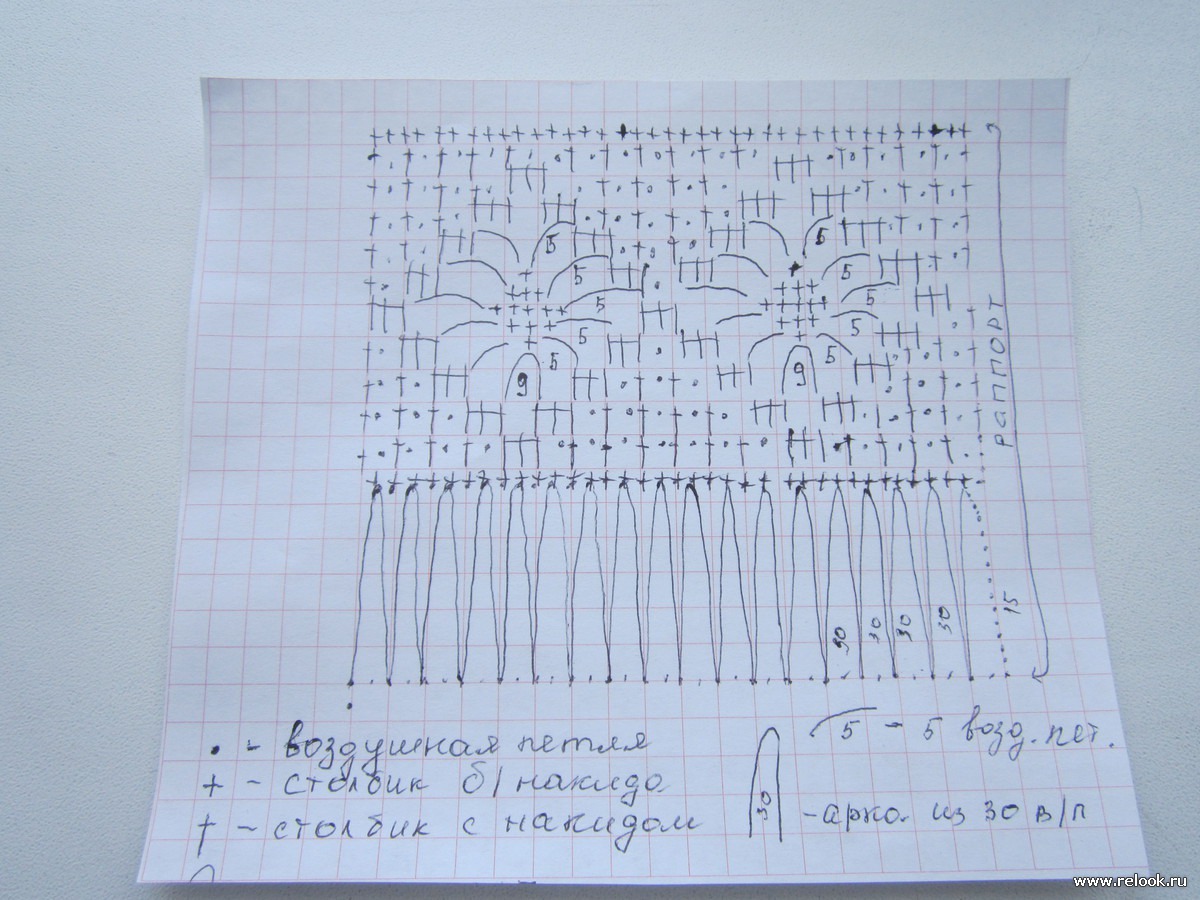 5
5
5
5
5
5
5
5
5
5
9
9
раппорт
30
30
30
30
15
• - воздушная петля
+ - столбик б/накида
† - столбик с накидом
5 - 5 возд. пет.
30 - арка из 30 в/п
www.relook.ru